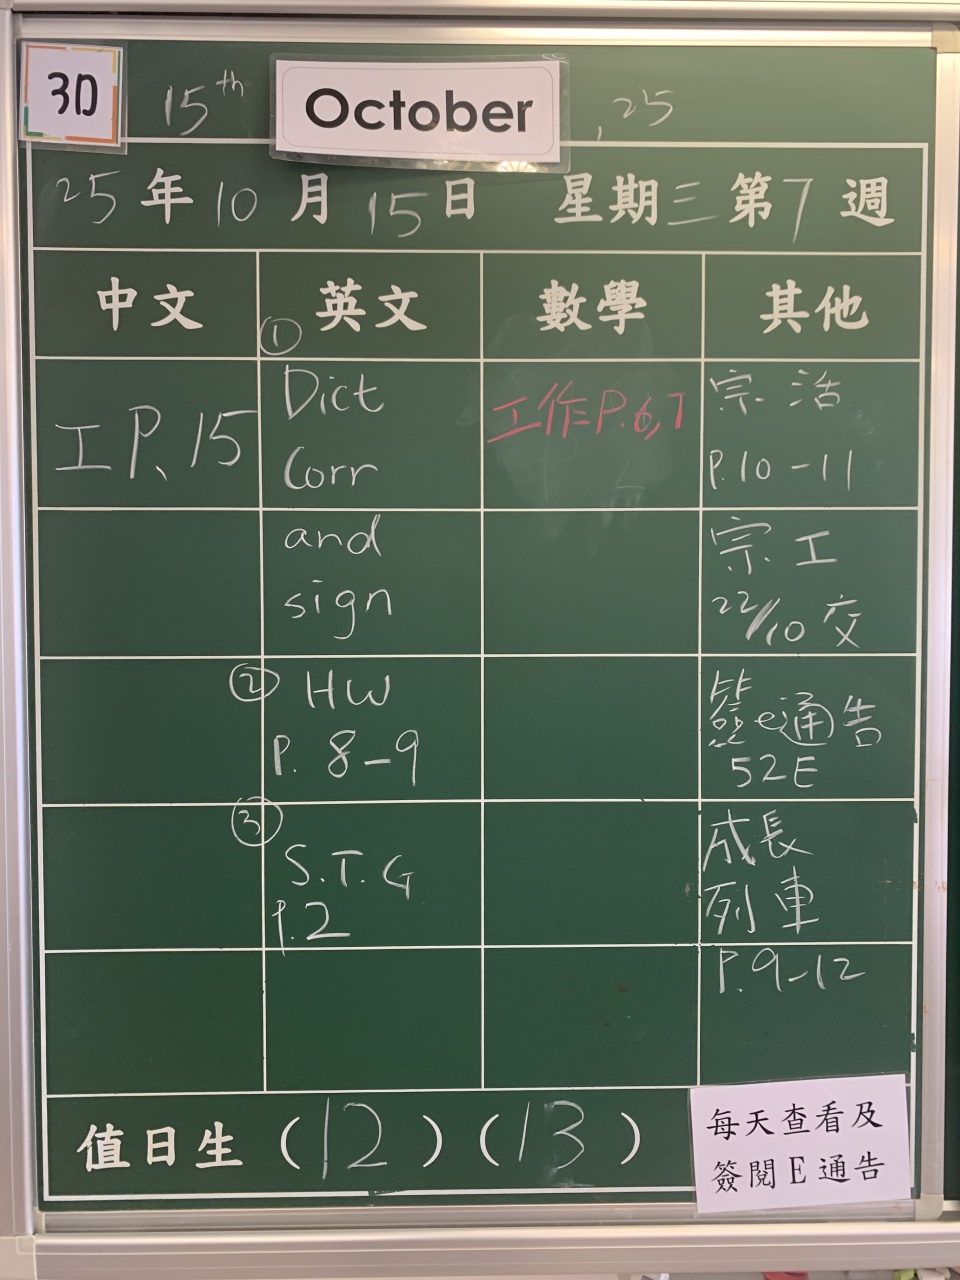 3D
15th October, 25
25年10月15日 星期三第7週
中文 英文 數學 其他
工P.15
①
Dict
Corr
and
sign
② HW
P. 8-9
③
S.T.G
P.2
工作P.6,7
宗.活
P.10-11
宗.工
22/10交
簽e通告
52E
成長
列車
P.9-12
值日生(12)(13)
每天查看及
簽閱E通告